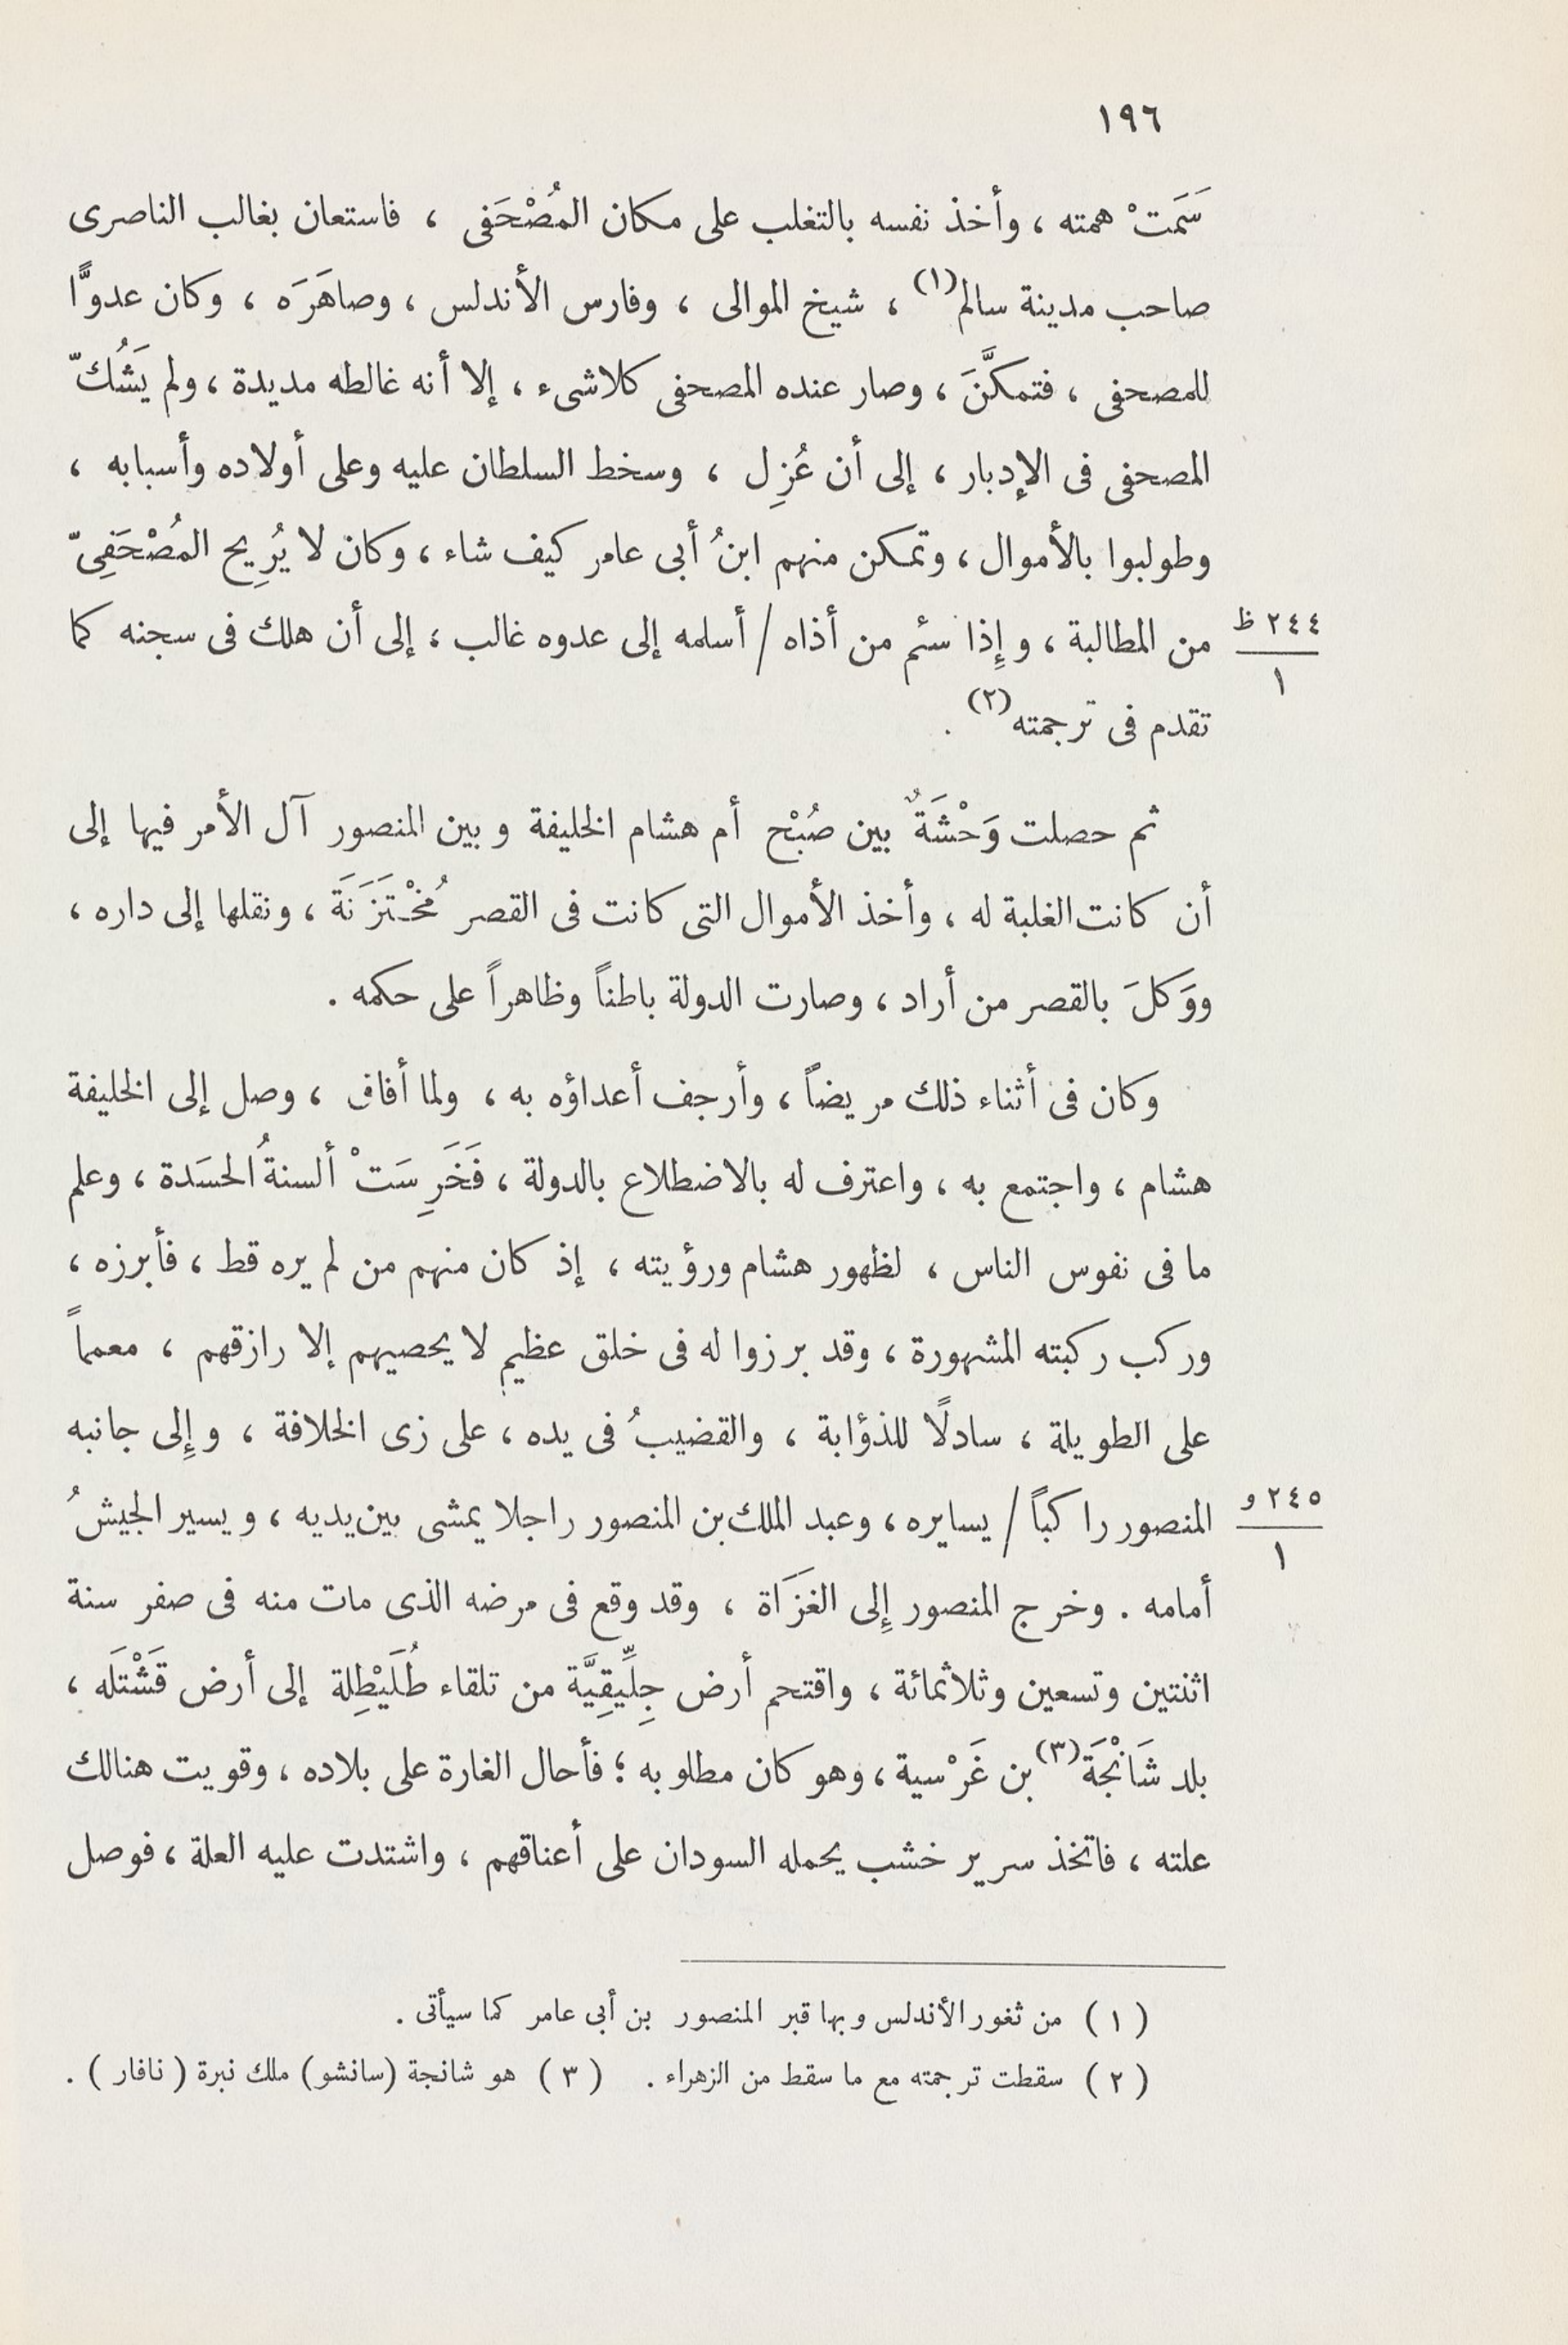 ١٩٦
سَمَتْ همته ، وأخذ نفسه بالتغلب على مكان المُصْحَفى ، فاستعان بغالب الناصرى
صاحب مدينة سالم(١) ، شيخ الموالى ، وفارس الأندلس ، وصاهَرَه ، وكان عدوًّا
للمصحفى ، فتمكَّنَ ، وصار عنده المصحفى كلاشىء ، إلا أنه غالطه مديدة ، ولم يَشُكّ
المصحفى فى الإدبار ، إلى أن عُزِل ، وسخط السلطان عليه وعلى أولاده وأسبابه ،
وطولبوا بالأموال ، وتمكن منهم ابنُ أبى عامر كيف شاء ، وكان لا يُرِيح المُصْحَفِىّ
من المطالبة ، وإِذا سئم من أذاه / أسلمه إلى عدوه غالب ، إلى أن هلك فى سجنه كما
٢٤٤ ظ
١
تقدم فى ترجمته(٢) .
ثم حصلت وَحْشَةٌ بين صُبْح أم هشام الخليفة وبين المنصور آل الأمر فيها إلى
أن كانت الغلبة له ، وأخذ الأموال التى كانت فى القصر مُخْتَزَنَة ، ونقلها إلى داره ،
ووَكلَ بالقصر من أراد ، وصارت الدولة باطناً وظاهراً على حكمه .
وكان فى أثناء ذلك مريضاً ، وأرجف أعداؤه به ، ولما أفاق ، وصل إلى الخليفة
هشام ، واجتمع به ، واعترف له بالاضطلاع بالدولة ، فَخَرِسَتْ ألسنةُ الحسَدة ، وعلم
ما فى نفوس الناس ، لظهور هشام ورؤيته ، إذ كان منهم من لم يره قط ، فأبرزه ،
وركب ركبته المشهورة ، وقد برزوا له فى خلق عظيم لا يحصيهم إلا رازقهم ، معمماً
على الطويلة ، سادلًا للذؤابة ، والقضيبُ فى يده ، على زى الخلافة ، وإِلى جانبه
المنصور راكباً / يسايره ، وعبد الملك بن المنصور راجلا يمشى بين يديه ، ويسير الجيشُ
٢٤٥ و
١
أمامه . وخرج المنصور إِلى الغَزَاة ، وقد وقع فى مرضه الذى مات منه فى صفر سنة
اثنتين وتسعين وثلاثمائة ، واقتحم أرض جِلِّيقِيَّة من تلقاء طُلَيْطِلة إلى أرض قَشْتَله ،
بلد شَانْجَة(٣) بن غَرْسية ، وهو كان مطلوبه ؛ فأحال الغارة على بلاده ، وقويت هنالك
علته ، فاتخذ سرير خشب يحمله السودان على أعناقهم ، واشتدت عليه العلة ، فوصل
( ١ ) من ثغور الأندلس وبها قبر المنصور بن أبى عامر كما سيأتى .
( ٢ ) سقطت ترجمته مع ما سقط من الزهراء . ( ٣ ) هو شانجة (سانشو) ملك نبرة ( نافار ) .